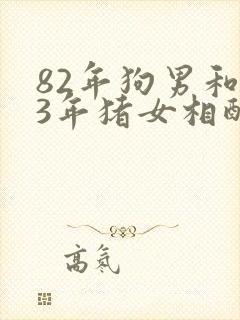 82年狗男和
3年猪女相配
高氪